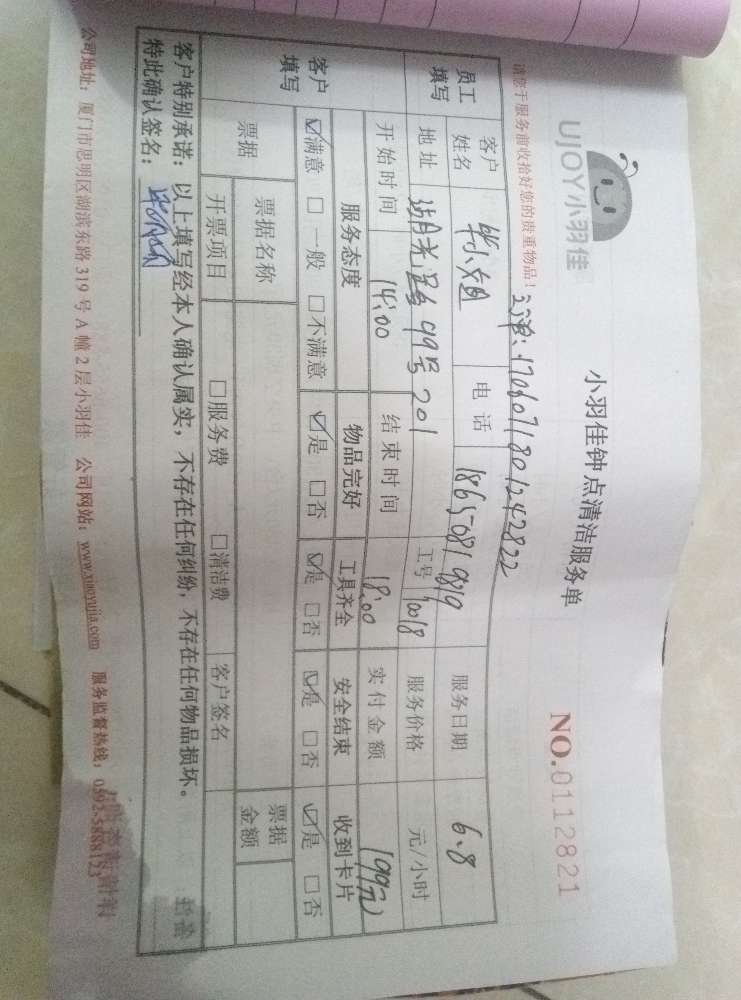 UJOY小羽佳
小羽佳钟点清洁服务单
NO.0112821
请您于服务前收拾好您的贵重物品!
订单:1706071801242822
员工填写
客户姓名 毕小姐 电话 18650819819 服务日期 6.8
地址 湖光路99号201 工号 70018 服务价格 元/小时
开始时间 14:00 结束时间 18:00 实付金额 199元
客户填写
服务态度 物品完好 工具齐全 安全结束 收到卡片
☑满意 □一般 □不满意 ☑是 □否 ☑是 □否 ☑是 □否 ☑是 □否
票据 票据名称 票据金额
开票项目 □服务费 □清洁费 客户签名
客户特别承诺:以上填写经本人确认属实,不存在任何纠纷,不存在任何物品损坏。
特此确认签名:
公司地址:厦门市思明区湖滨东路 319 号 A 幢 2 层小羽佳 公司网站:www.xiaoyujia.com 服务监督热线: